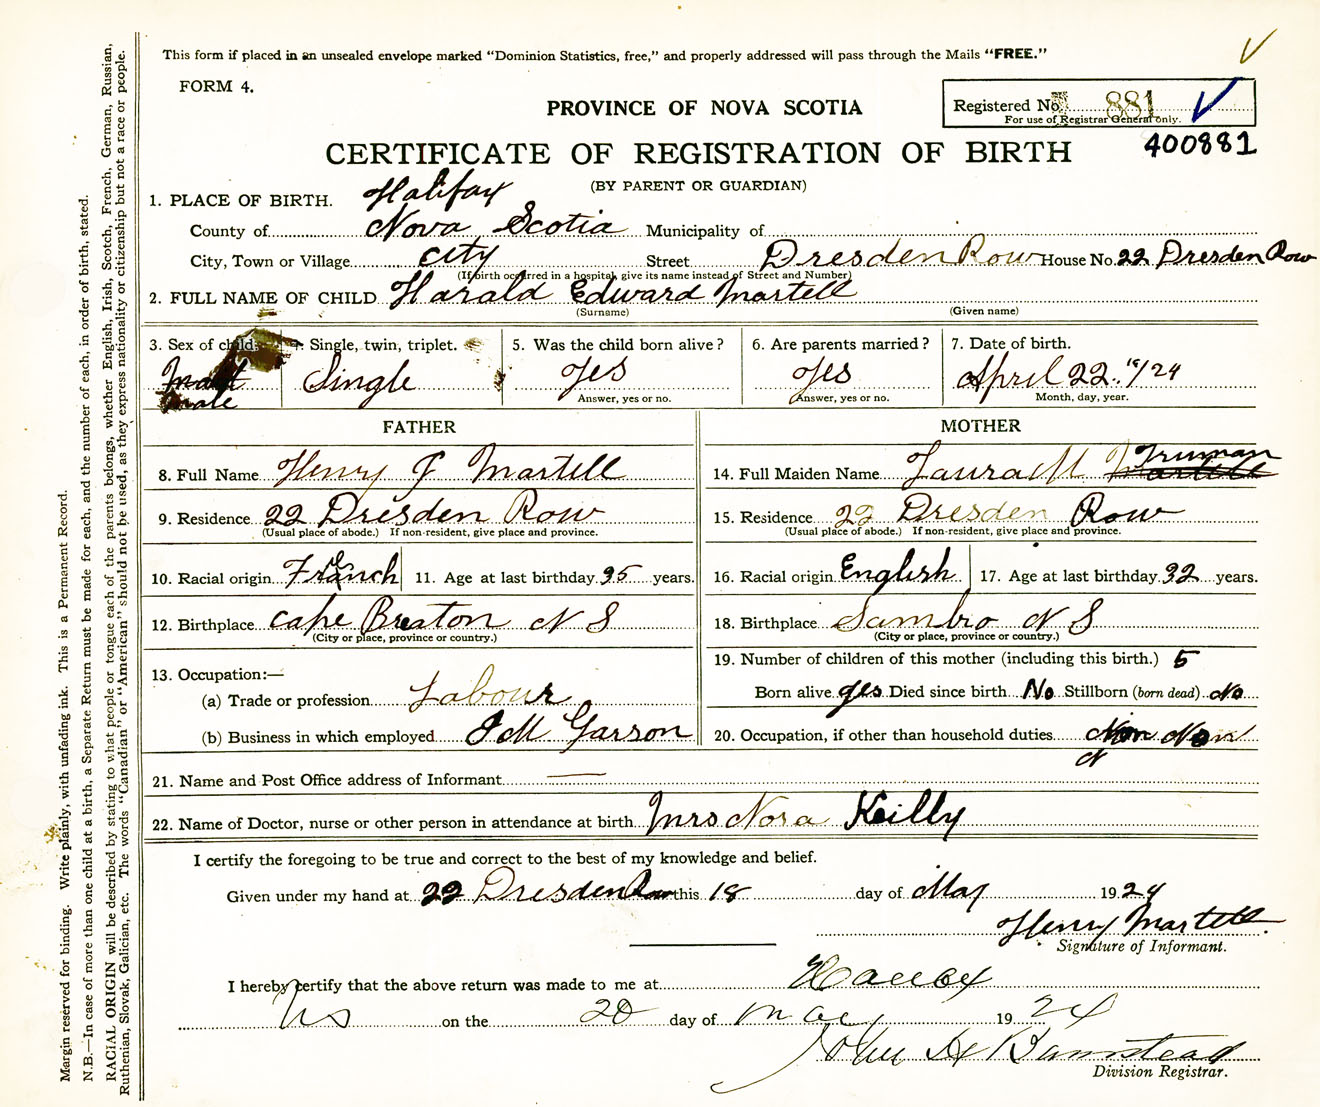 This form if placed in an unsealed envelope marked "Dominion Statistics, free," and properly addressed will pass through the Mails "FREE."
FORM 4.
Registered No. 881
For use of Registrar General only.
400881
PROVINCE OF NOVA SCOTIA
CERTIFICATE OF REGISTRATION OF BIRTH
(BY PARENT OR GUARDIAN)
1. PLACE OF BIRTH. Halifax
County of Nova Scotia Municipality of
City, Town or Village City Street Dresden Row House No. 22 Dresden Row
(If birth occurred in a hospital, give its name instead of Street and Number)
2. FULL NAME OF CHILD Harald Edward Martell
(Surname) (Given name)
3. Sex of child. 4. Single, twin, triplet. 5. Was the child born alive? 6. Are parents married? 7. Date of birth.
Male Single yes yes April 22. 19/24
Answer, yes or no. Answer, yes or no. Month, day, year.
FATHER MOTHER
8. Full Name Henry J Martell 14. Full Maiden Name Laura M Martell Truman
9. Residence 22 Dresden Row 15. Residence 22 Dresden Row
(Usual place of abode.) If non-resident, give place and province. (Usual place of abode.) If non-resident, give place and province.
10. Racial origin French 11. Age at last birthday 35 years. 16. Racial origin English 17. Age at last birthday 32 years.
12. Birthplace Cape Breaton N S 18. Birthplace Sambro N S
(City or place, province or country.) (City or place, province or country.)
13. Occupation:— 19. Number of children of this mother (including this birth.) 5
(a) Trade or profession Labour Born alive yes Died since birth No Stillborn (born dead) No
(b) Business in which employed J M Garson 20. Occupation, if other than household duties
21. Name and Post Office address of Informant
22. Name of Doctor, nurse or other person in attendance at birth Mrs Nora Keilly
I certify the foregoing to be true and correct to the best of my knowledge and belief.
Given under my hand at 22 Dresden Row this 18 day of May 1924
Henry Martell.
Signature of Informant.
I hereby certify that the above return was made to me at Halifax
NS on the 20 day of May 1924
John A Barnstead
Division Registrar.
Margin reserved for binding. Write plainly, with unfading ink. This is a Permanent Record.
N.B.—In case of more than one child at a birth, a Separate Return must be made for each, and the number of each, in order of birth, stated.
RACIAL ORIGIN will be described by stating to what people or tongue each of the parents belongs, whether English, Irish, Scotch, French, German, Russian,
Ruthenian, Slovak, Galician, etc. The words "Canadian" or "American" should not be used, as they express nationality or citizenship but not a race or people.